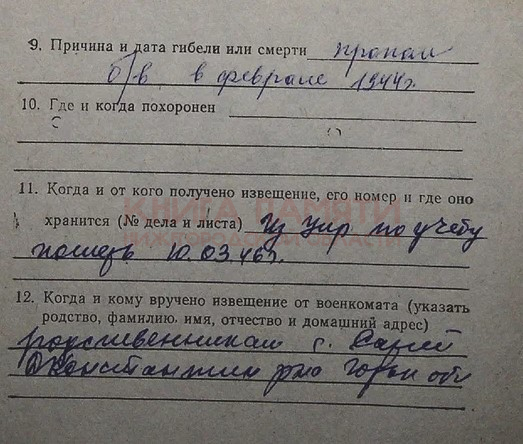 9. Причина и дата гибели или смерти пропал
б/в в феврале 1944г.
10. Где и когда похоронен
11. Когда и от кого получено извещение, его номер и где оно
КНИГА ПАМЯТИ
хранится (№ дела и листа) Из Упр по учету
потерь 10.03.46г.
12. Когда и кому вручено извещение от военкомата (указать
родство, фамилию, имя, отчество и домашний адрес)
родственникам с.
рна Горьк обл